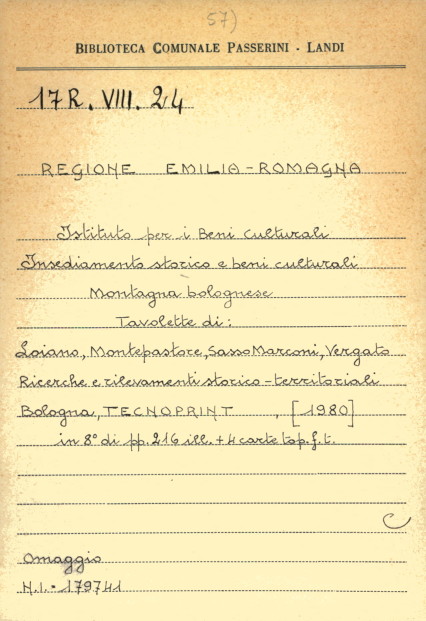 57)
BIBLIOTECA COMUNALE PASSERINI - LANDI
17 R. VIII. 24
REGIONE EMILIA-ROMAGNA
Istituto per i Beni culturali
Insediamento storico e beni culturali
Montagna bolognese
Tavolette di:
Loiano, Montepastore, Sasso Marconi, Vergato
Ricerche e rilevamenti storico-territoriali
Bologna, TECNOPRINT , [1980]
in 8° di pp. 216 ill. + 4 carte top. f. t.
C
Omaggio
N.I. - 179741